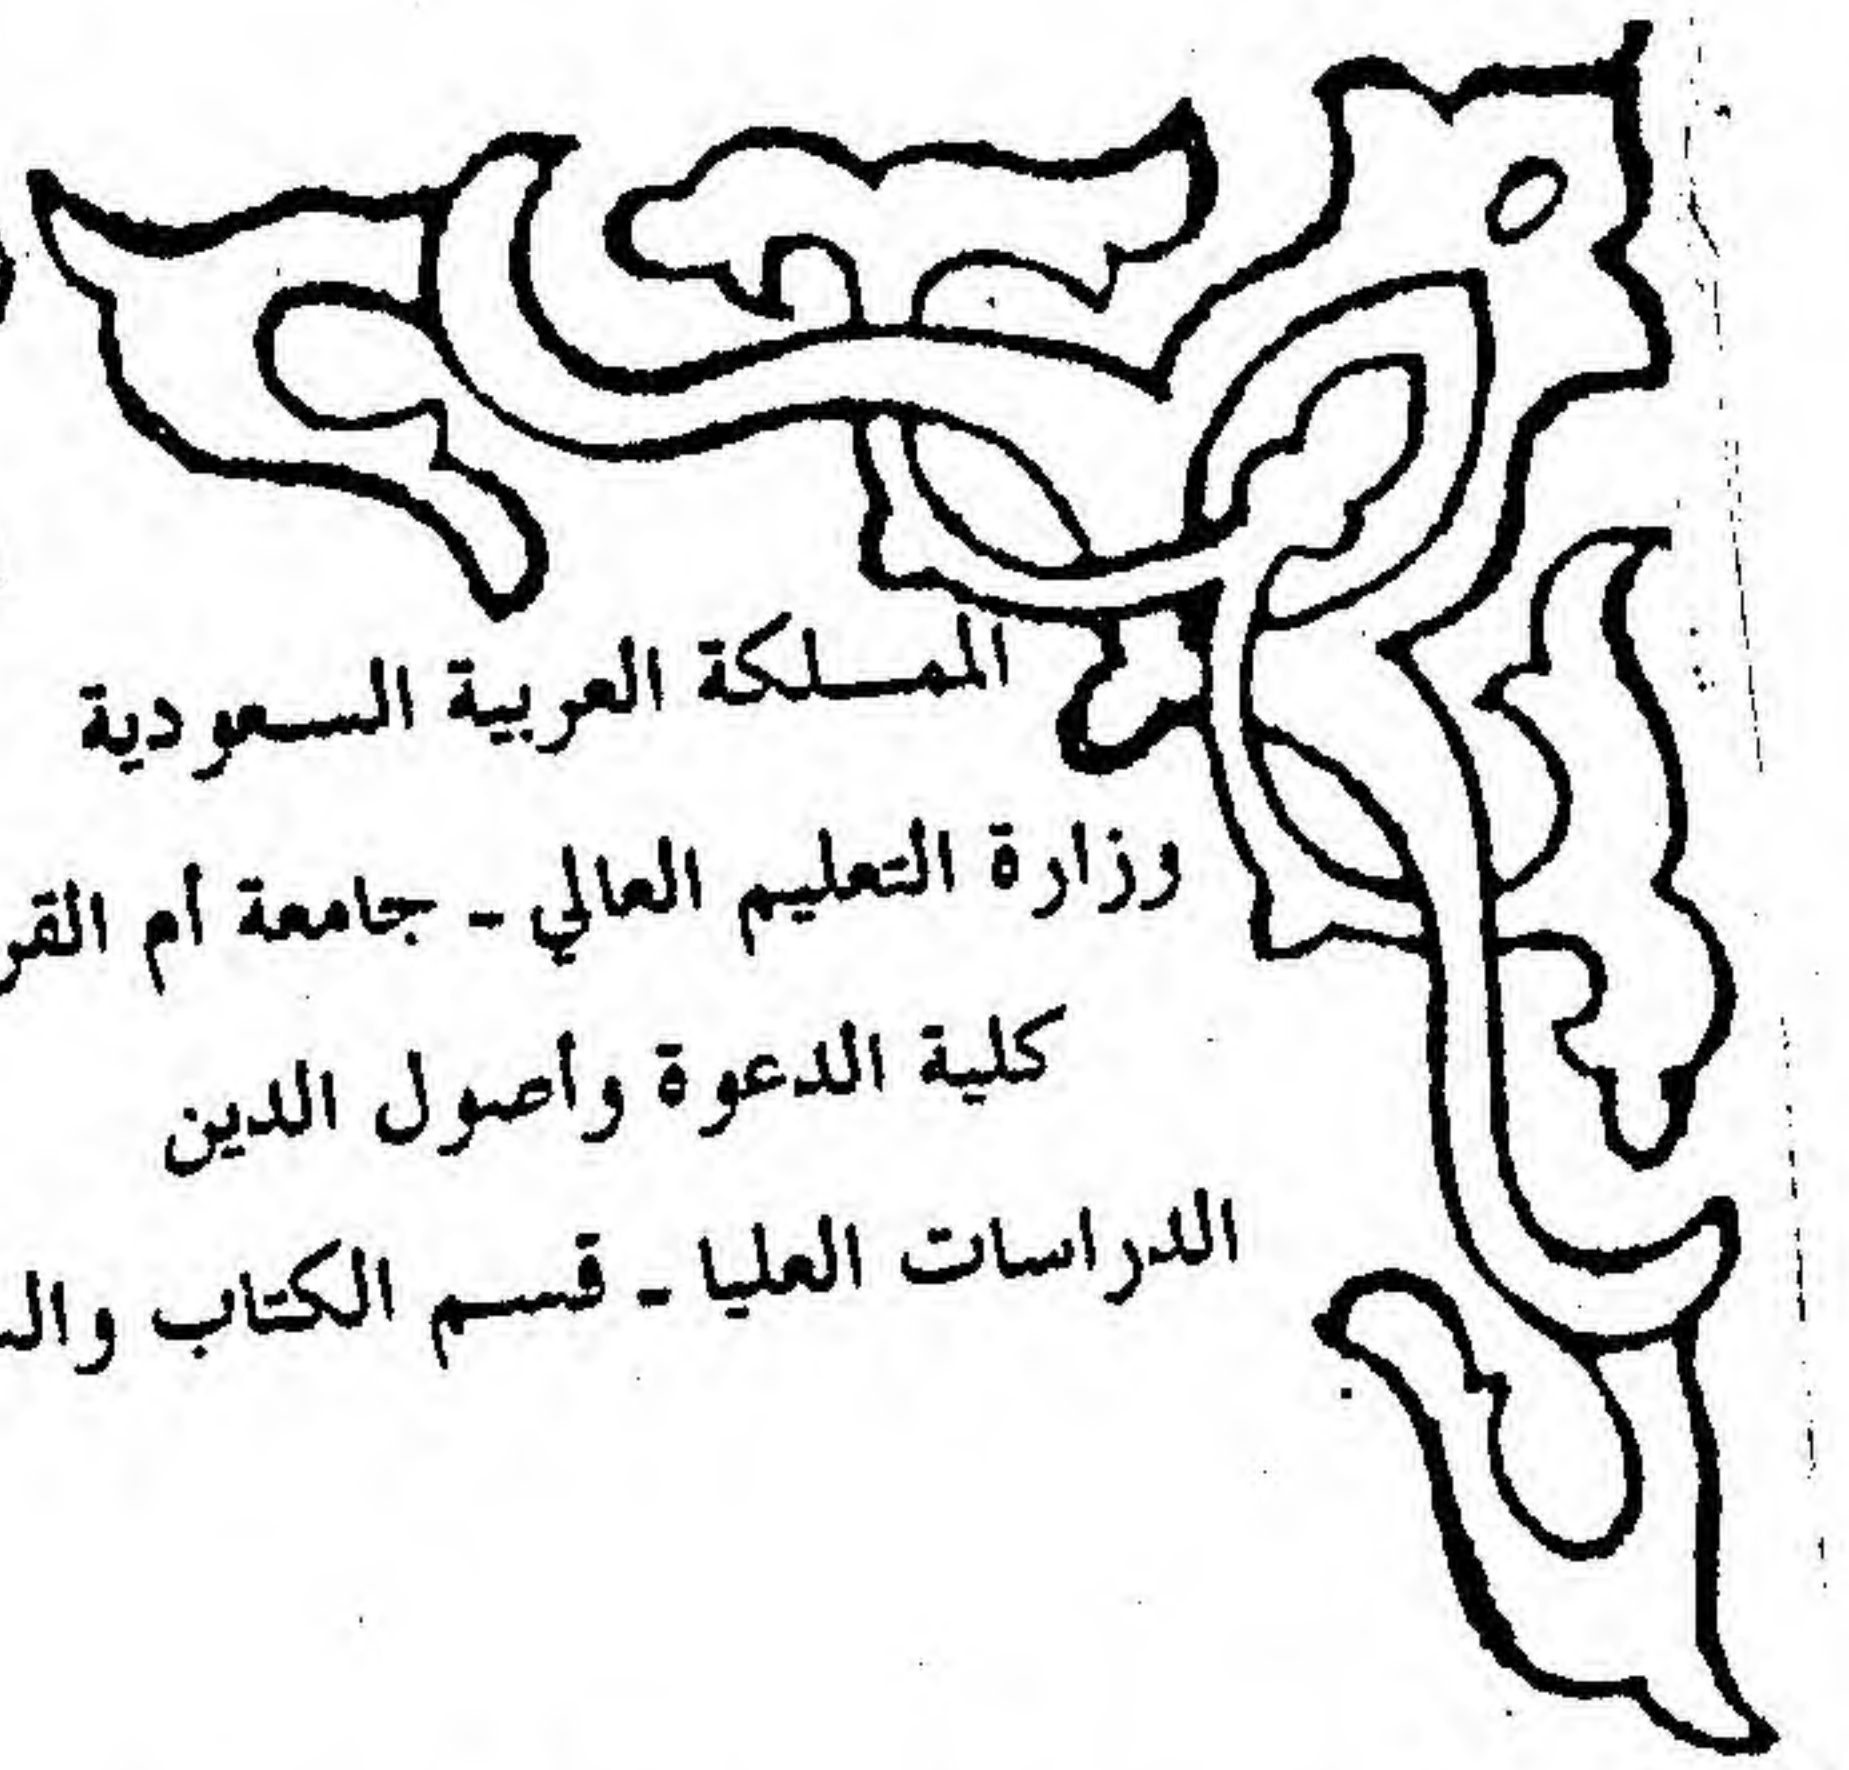 المملكة العربية السعودية
وزارة التعليم العالي - جامعة أم القر
كلية الدعوة وأصول الدين
الدراسات العليا - قسم الكتاب وال